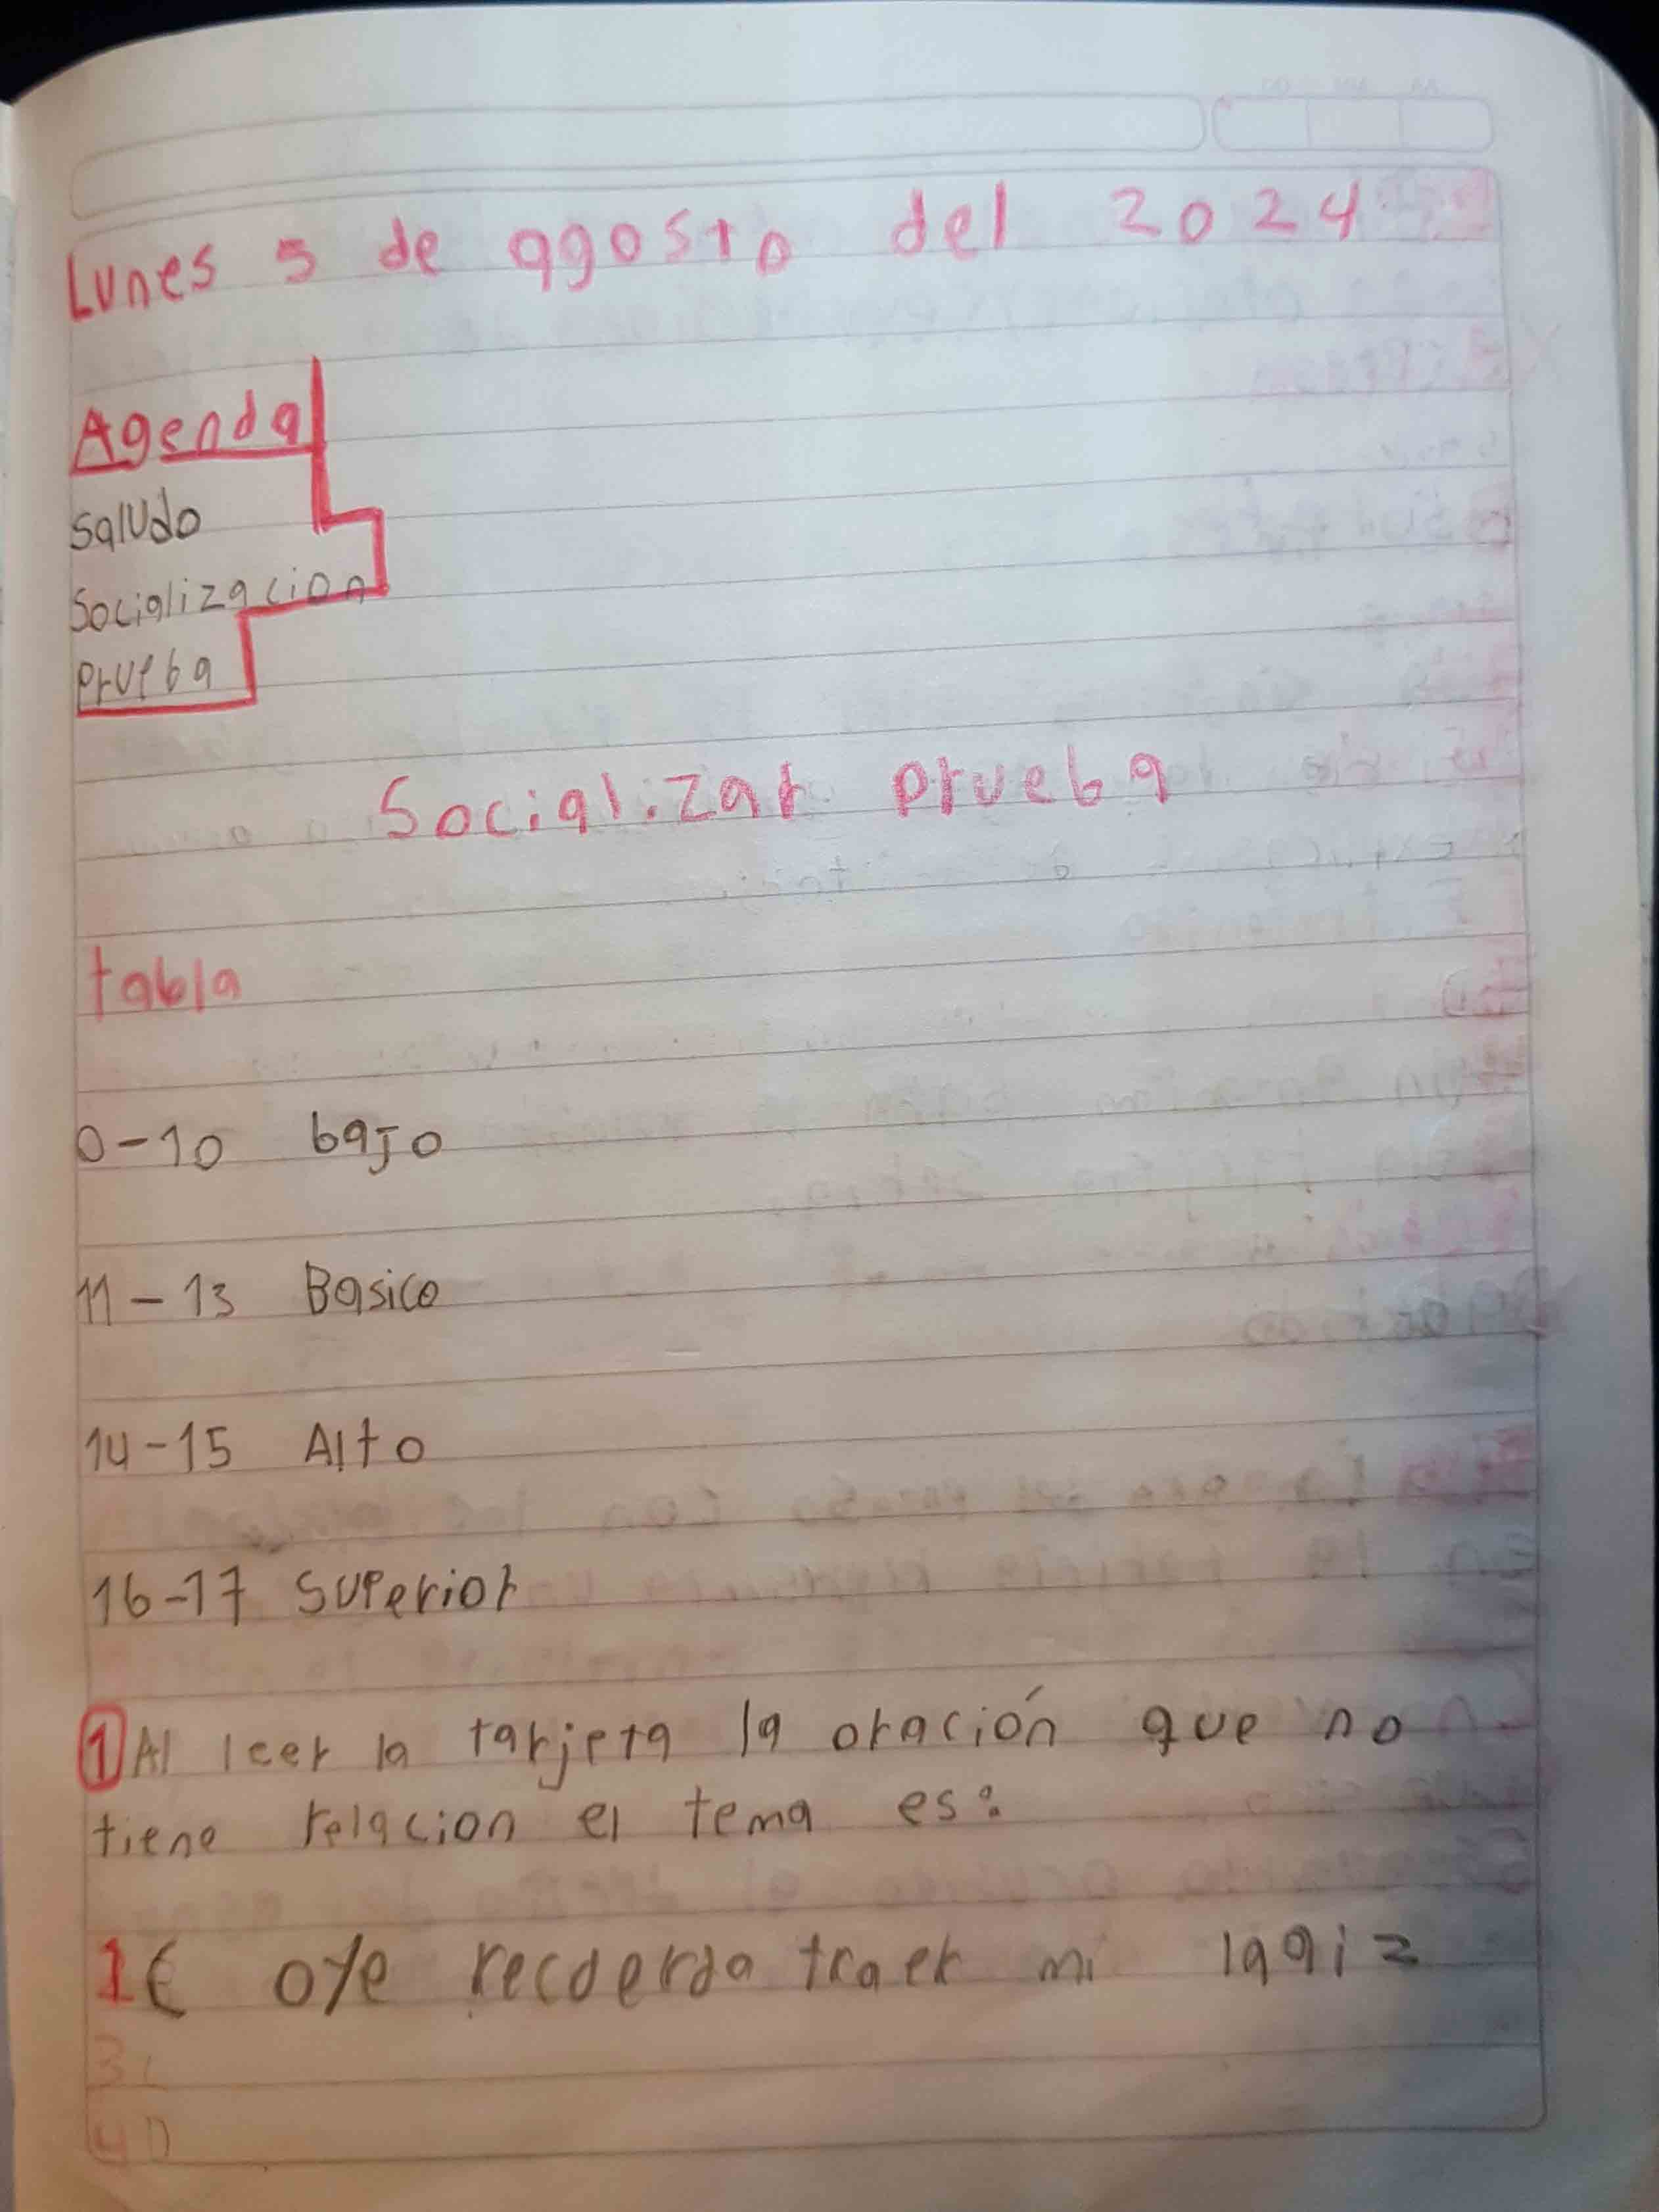 Lunes 5 de agosto del 2024
Agenda
Saludo
Socializacion
Prueba
Socializar prueba
tabla
0-10 bajo
11-13 Basico
14-15 Alto
16-17 Superior
1 Al leer la tarjeta la oración que no
tiene relacion el tema es:
1 € oye recuerda traer mi
3
4D